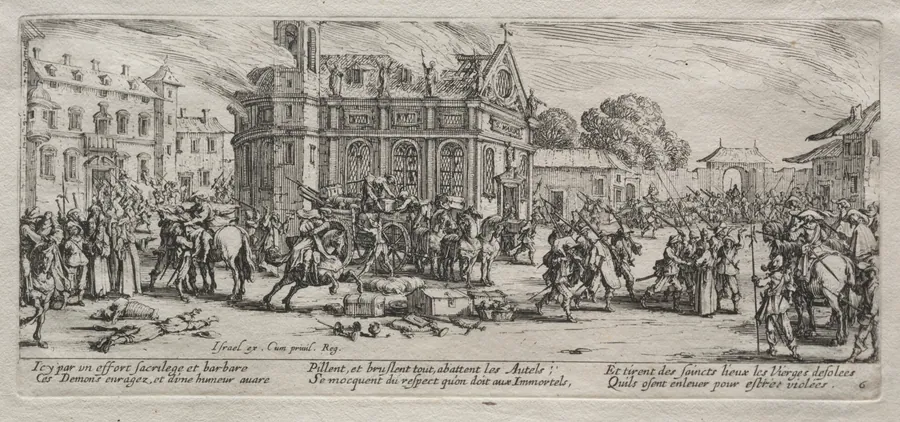 S. MARIA
Israel ex. Cum privil. Reg.
Icy par vn effort sacrilege et barbare
Ces Demons enragez, et d'vne humeur auare
Pillent, et bruslent tout, abattent les Autels ;
Se mocquent du respect qu'on doit aux Immortels,
Et tirent des saincts lieux les Vierges desolees
Quils osent enleuer pour estre violées .
6